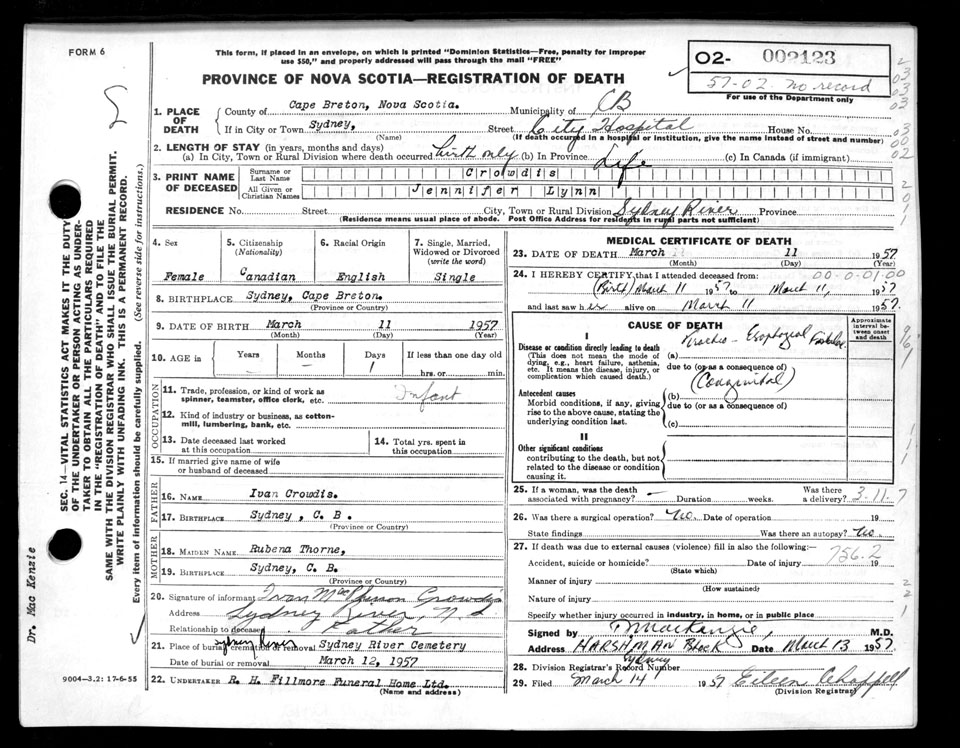 FORM 6
This form, if placed in an envelope, on which is printed "Dominion Statistics—Free, penalty for improper
use $50," and properly addressed will pass through the mail "FREE"
PROVINCE OF NOVA SCOTIA—REGISTRATION OF DEATH
02- 002123
57-02 no record
For use of the Department only
1. PLACE OF DEATH
County of Cape Breton, Nova Scotia. Municipality of CB
If in City or Town Sydney, Street City Hospital House No.
(Name) (If death occurred in a hospital or institution, give the name instead of street and number)
2. LENGTH OF STAY (in years, months and days)
(a) In City, Town or Rural Division where death occurred birth only (b) In Province Life (c) In Canada (if immigrant)
3. PRINT NAME OF DECEASED
Surname or Last Name Crowdis
All Given or Christian Names Jennifer Lynn
RESIDENCE No. Street City, Town or Rural Division Sydney River Province
(Residence means usual place of abode. Post Office Address for residents in rural parts not sufficient)
4. Sex
Female
5. Citizenship
(Nationality)
Canadian
6. Racial Origin
English
7. Single, Married,
Widowed or Divorced
(write the word)
Single
8. BIRTHPLACE Sydney, Cape Breton.
(Province or Country)
9. DATE OF BIRTH March 11 1957
(Month) (Day) (Year)
10. AGE in Years Months Days If less than one day old
1 hrs. or min.
OCCUPATION
11. Trade, profession, or kind of work as
spinner, teamster, office clerk, etc. Infant
12. Kind of industry or business, as cotton-
mill, lumbering, bank, etc.
13. Date deceased last worked
at this occupation
14. Total yrs. spent in
this occupation
15. If married give name of wife
or husband of deceased
FATHER
16. NAME Ivan Crowdis.
17. BIRTHPLACE Sydney, C. B.
(Province or Country)
MOTHER
18. MAIDEN NAME Rubena Thorne,
19. BIRTHPLACE Sydney, C. B.
(Province or Country)
20. Signature of informant Ivan Crowdis
Address Sydney River, N.S.
Relationship to deceased Father
21. Place of burial, cremation or removal Sydney River Cemetery
Sydney River
Date of burial or removal March 12, 1957
22. UNDERTAKER R. H. Fillmore Funeral Home Ltd.
(Name and address)
9004-3.2: 17-6-55
MEDICAL CERTIFICATE OF DEATH
23. DATE OF DEATH March 11 1957
(Month) (Day) (Year)
24. I HEREBY CERTIFY, that I attended deceased from: 00-0-01-00
(Birth) March 11 1957 to March 11, 1957
and last saw her alive on March 11 1957.
CAUSE OF DEATH
Approximate
interval be-
tween onset
and death
I
Disease or condition directly leading to death
(This does not mean the mode of
dying, e.g., heart failure, asthenia,
etc. It means the disease, injury, or
complication which caused death.)
(a) Tracheo-Esophageal Fistula
due to (or as a consequence of)
(Congenital)
Antecedent causes
Morbid conditions, if any, giving
rise to the above cause, stating the
underlying condition last.
(b)
due to (or as a consequence of)
(c)
II
Other significant conditions
contributing to the death, but not
related to the disease or condition
causing it.
25. If a woman, was the death
associated with pregnancy? — Duration weeks. Was there
a delivery? 3-11-7
26. Was there a surgical operation? No. Date of operation 19
State findings Was there an autopsy? No.
27. If death was due to external causes (violence) fill in also the following:—
756.2
Accident, suicide or homicide? Date of injury 19
(State which)
Manner of injury
(How sustained)
Nature of injury
Specify whether injury occurred in industry, in home, or in public place
Signed by MacKenzie, M.D.
Address HARSHMAN Block Date March 13 1957.
Sydney
28. Division Registrar's Record Number
29. Filed March 14 1957 Eileen Chappell
(Division Registrar)
SEC. 14—VITAL STATISTICS ACT MAKES IT THE DUTY
OF THE UNDERTAKER OR PERSON ACTING AS UNDER-
TAKER TO OBTAIN ALL THE PARTICULARS REQUIRED
IN THE "REGISTRATION OF DEATH" AND TO FILE THE
SAME WITH THE DIVISION REGISTRAR WHO SHALL ISSUE THE BURIAL PERMIT.
WRITE PLAINLY WITH UNFADING INK. THIS IS A PERMANENT RECORD.
Every item of information should be carefully supplied. (See reverse side for instructions.)
Dr. Mac Kenzie